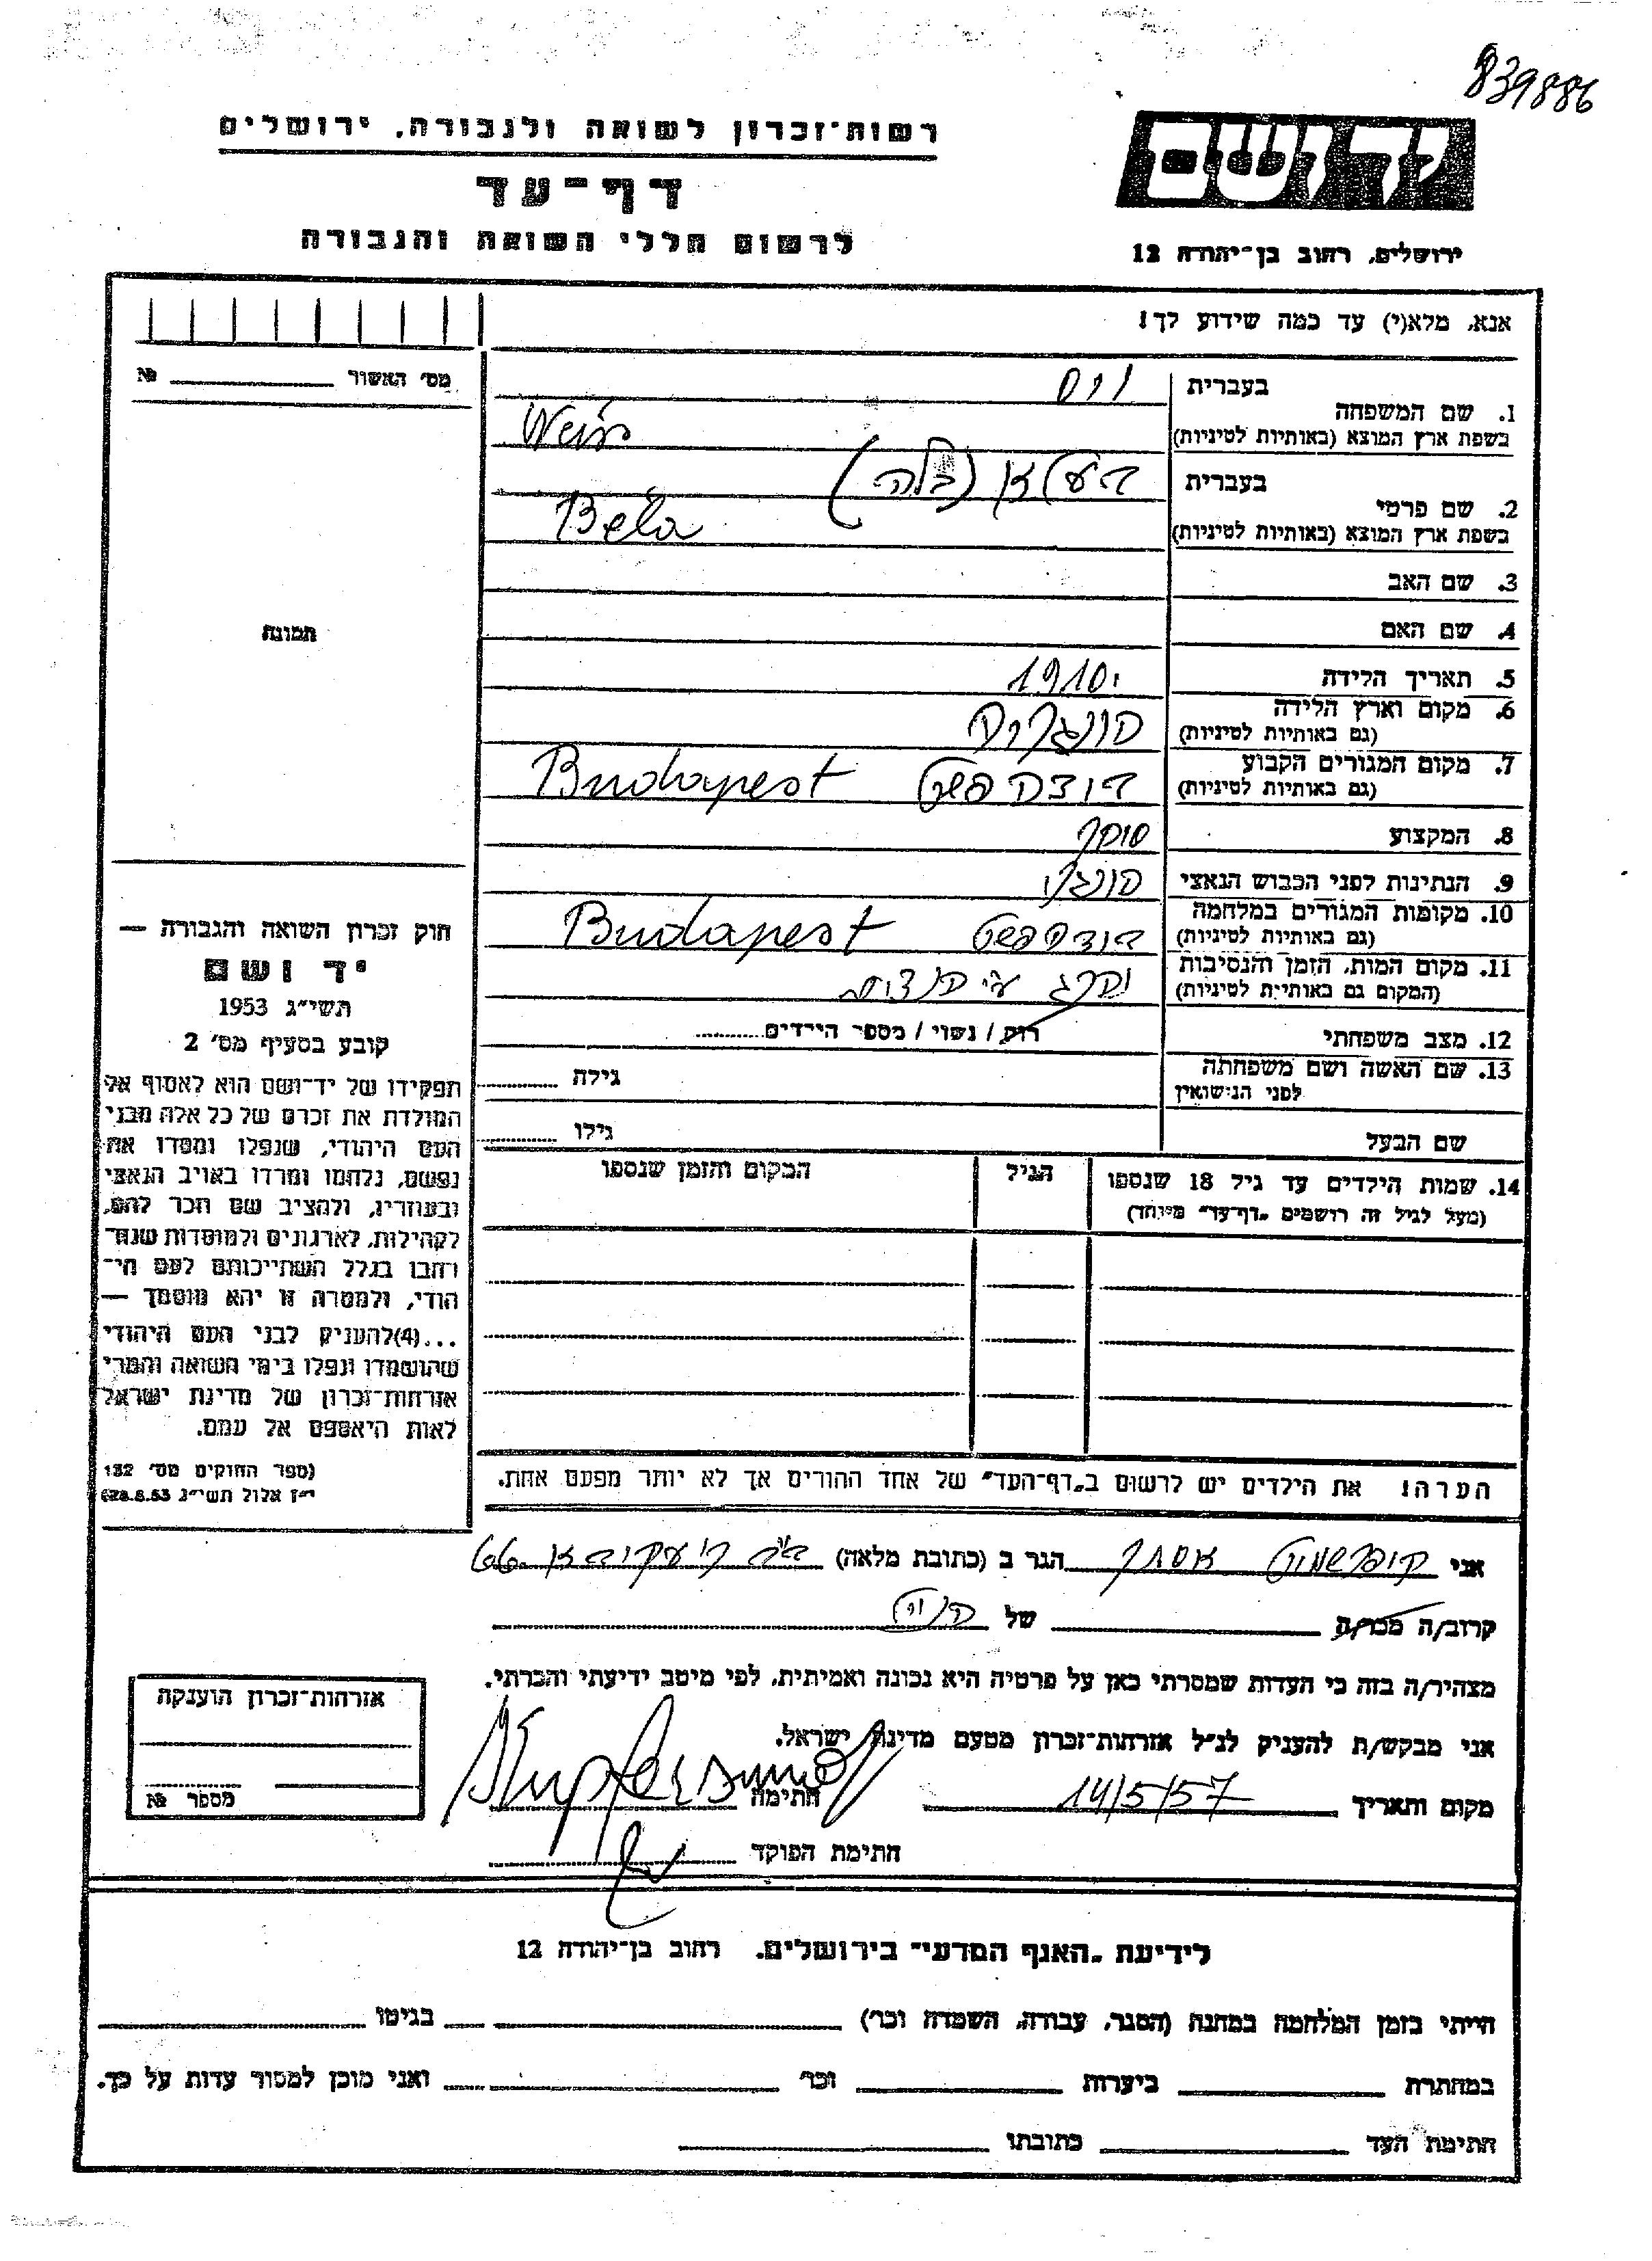 839886
רשות־זכרון לשואה ולגבורה, ירושלים
יד ושם
דף־עד
לרשום חללי השואה והגבורה
ירושלים, רחוב בן־יהודה 12
אנא, מלא(י) עד כמה שידוע לך!
מס׳ האשור № 
בעברית
1. שם המשפחה
בשפת ארץ המוצא (באותיות לטיניות)
וייס
Weiss
בעברית
2. שם פרטי
בשפת ארץ המוצא (באותיות לטיניות)
(בלה)
Béla
3. שם האב
תמונה
4. שם האם
5. תאריך הלידה
1910
6. מקום וארץ הלידה
(גם באותיות לטיניות)
7. מקום המגורים הקבוע
(גם באותיות לטיניות)
בודאפשט Budapest
8. המקצוע
סוחר
9. הנתינות לפני הכבוש הנאצי
הונגרי
10. מקומות המגורים במלחמה
(גם באותיות לטיניות)
בודהפשט Budapest
11. מקום המות, הזמן והנסיבות
(המקום גם באותיות לטיניות)
12. מצב משפחתי
רוק / נשוי / מספר הילדים
13. שם האשה ושם משפחתה
לפני הנישואין
גילה
שם הבעל
גילו
14. שמות הילדים עד גיל 18 שנספו
(מעל לגיל זה רושמים „דף־עד״ מיוחד)
הגיל
המקום והזמן שנספו
חוק זכרון השואה והגבורה —
יד ושם
תשי״ג 1953
קובע בסעיף מס׳ 2
תפקידו של יד־ושם הוא לאסוף אל
המולדת את זכרם של כל אלה מבני
העם היהודי, שנפלו ומסרו את
נפשם, נלחמו ומרדו באויב הנאצי
ובעוזריו, ולהציב שם וזכר להם,
לקהילות, לארגונים ולמוסדות שנח־
רבו בגלל השתייכותם לעם הי־
הודי, ולמטרה זו יהא מוסמך —
...(4)להעניק לבני העם היהודי
שהושמדו ונפלו בימי השואה והמרי
אזרחות־זכרון של מדינת ישראל
לאות היאספם אל עמם.
(ספר החוקים מס׳ 132
י״ז אלול תשי״ג 28.8.53)
הערה! את הילדים יש לרשום ב„דף־העד״ של אחד ההורים אך לא יותר מפעם אחת.
אני קופרשמיט אסתר הגר ב (כתובת מלאה)
קרוב/ה מכר/ה של
מצהיר/ה בזה כי העדות שמסרתי כאן על פרטיה היא נכונה ואמיתית, לפי מיטב ידיעתי והכרתי.
אני מבקש/ת להעניק לנ״ל אזרחות־זכרון מטעם מדינת ישראל.
מקום ותאריך 14/5/57 חתימה
חתימת הפוקד
אזרחות־זכרון הוענקה
מספר №
לידיעת „האגף המדעי״ בירושלים. רחוב בן־יהודה 12
הייתי בזמן המלחמה במחנה (הסגר, עבודה, השמדה וכו׳) בגיטו
במחתרת ביערות וכו׳ ואני מוכן למסור עדות על כך.
חתימת העד כתובתו